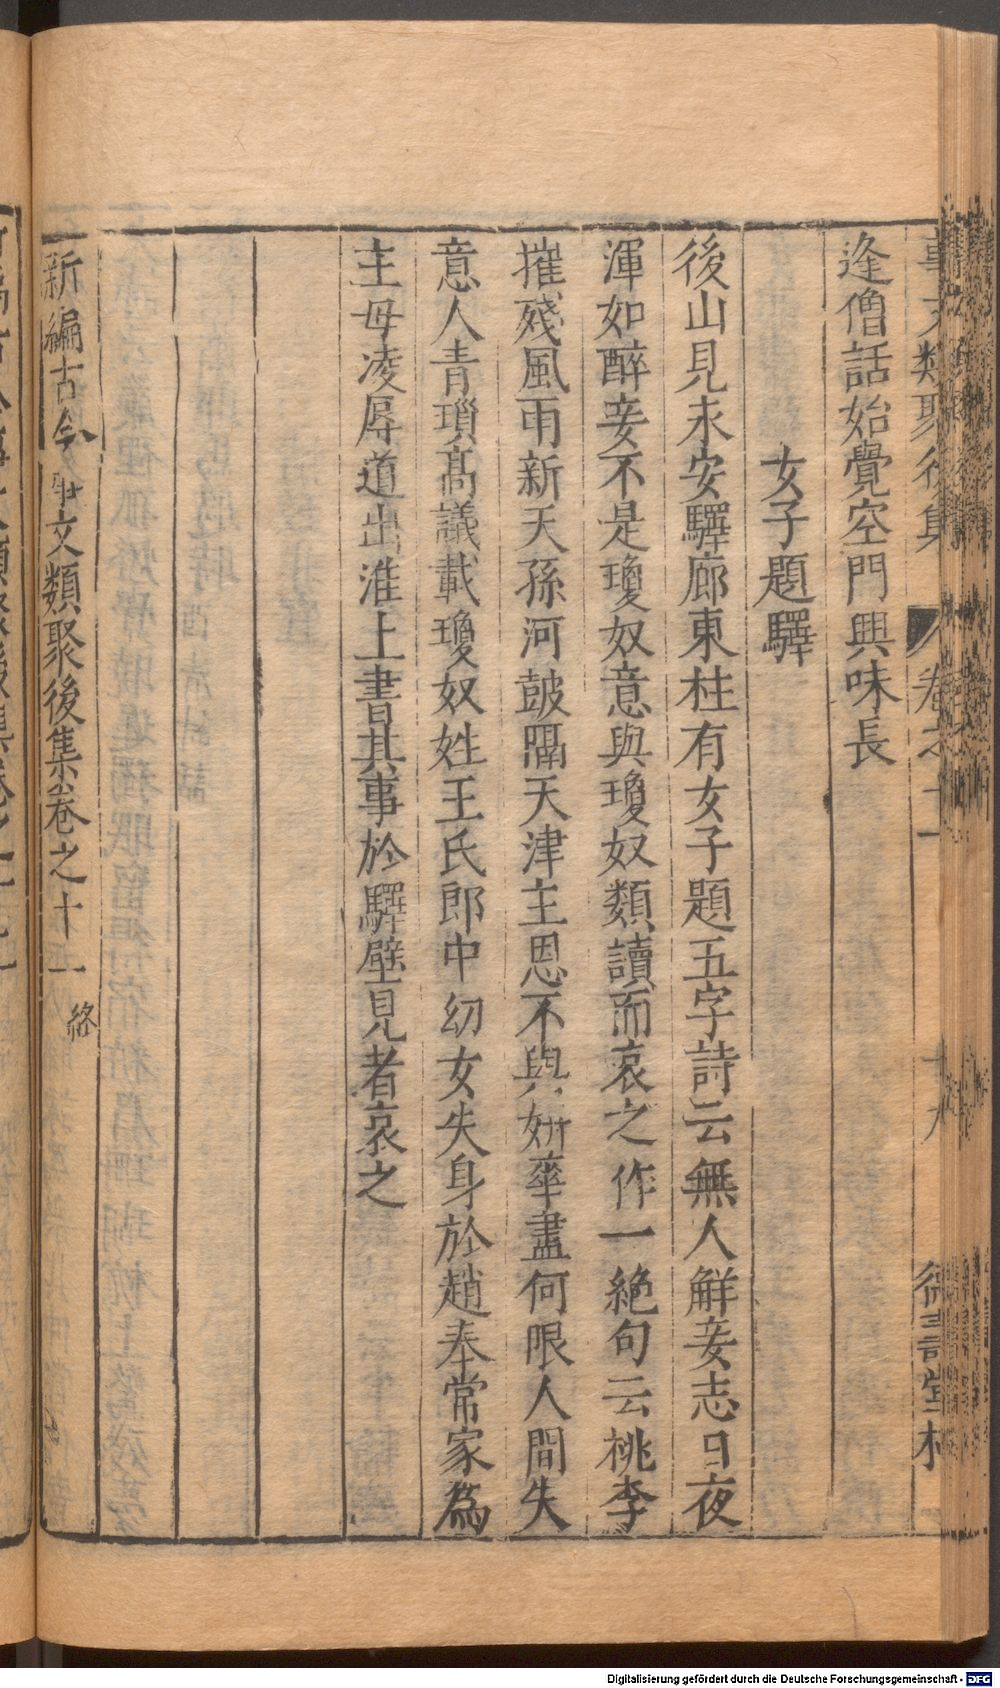 事文類聚後集 卷之十一 十九 德壽堂梓
逢僧話始覺空門興味長
女子題驛
後山見永安驛廊東柱有女子題五字詩云無人鮮妾志日夜
渾如醉妾不是瓊奴意與瓊奴類讀而哀之作一絕句云桃李
摧殘風雨新天孫河皷隔天津主恩不與妍華盡何限人間失
意人青瑣高議載瓊奴姓王氏郎中幼女失身於趙奉常家為
主母凌辱道出淮上書其事於驛壁見者哀之
新編古今事文類聚後集卷之十一 終
Digitalisierung gefördert durch die Deutsche Forschungsgemeinschaft - DFG